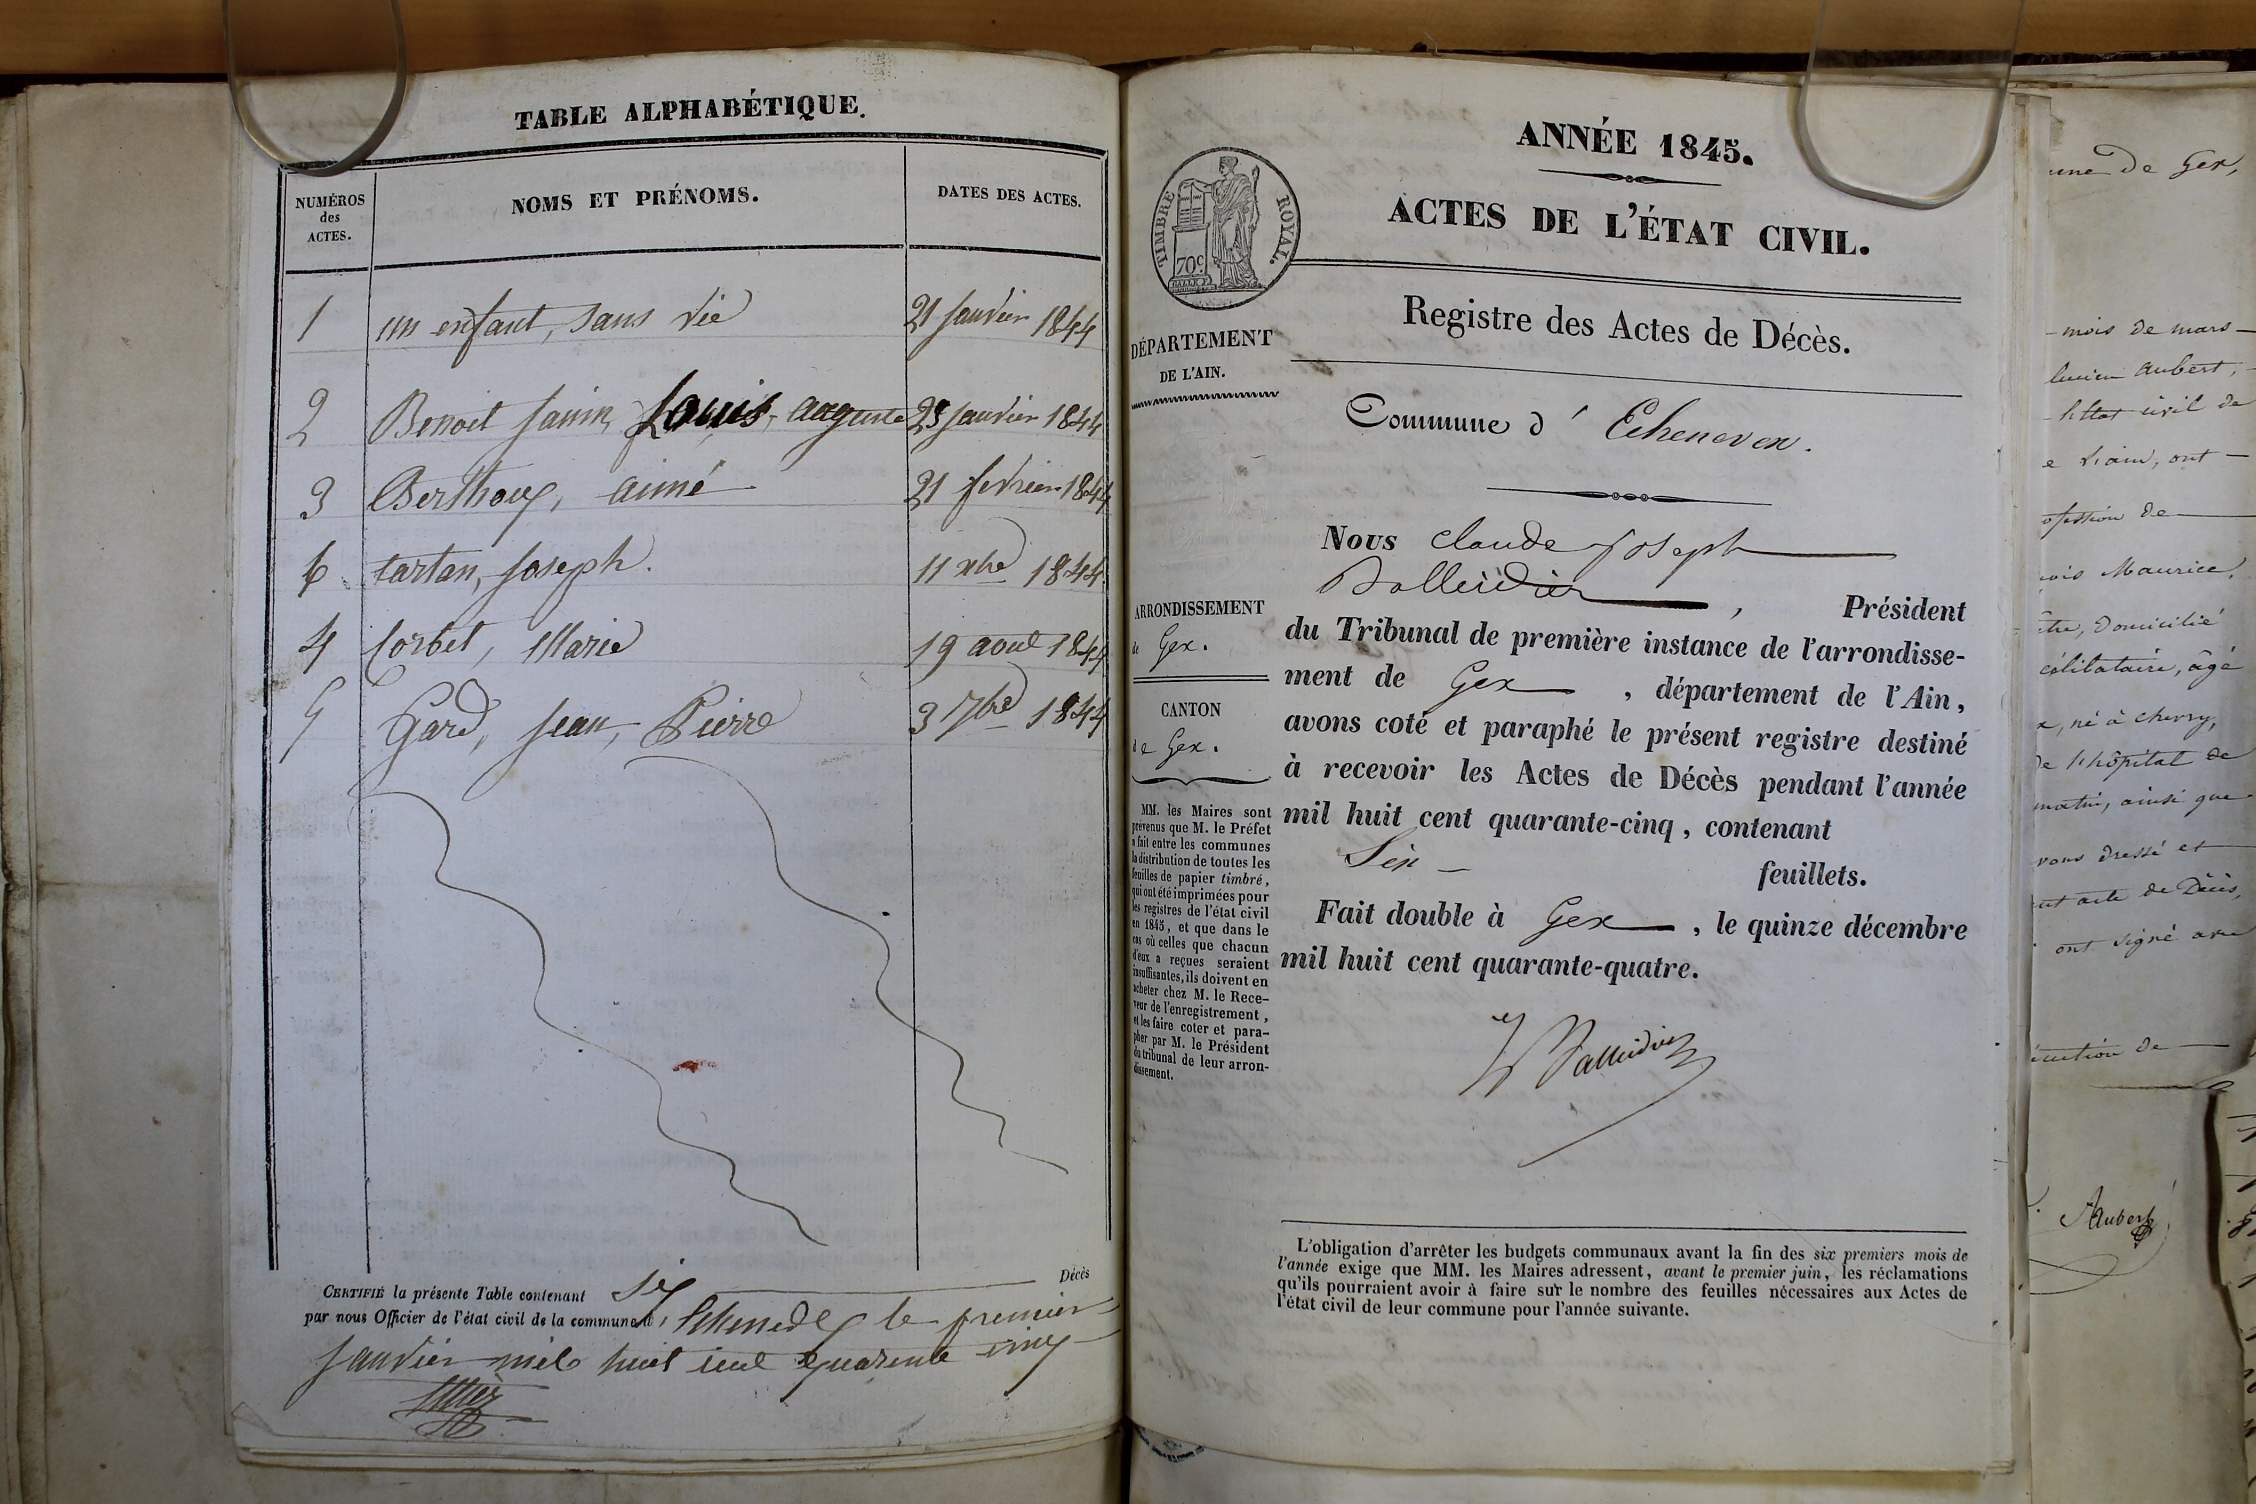 TABLE ALPHABÉTIQUE.
NUMÉROS
des
ACTES.
NOMS ET PRÉNOMS.
DATES DES ACTES.
1 un enfant, sans vie 21 janvier 1844
2 Benoit Janin, Louis, auguste 25 janvier 1844
3 Berthoux, aimé 21 fevrier 1844
6 tartan, Joseph. 11 xbre 1844
4 Corbet, Marie 19 aout 1844
5 Gard, Jean, Pierre 3 7bre 1844
CERTIFIÉ la présente Table contenant six Décès
par nous Officier de l'état civil de la commune d' Echenevex le premier
janvier mil huit cent quarente cinq
ANNÉE 1845.
ACTES DE L'ÉTAT CIVIL.
TIMBRE ROYAL.
70c
Registre des Actes de Décès.
DÉPARTEMENT
DE L'AIN.
Commune d' Echenevex.
Nous Claude Joseph
Balleidier, Président
du Tribunal de première instance de l'arrondisse-
ment de Gex, département de l'Ain,
avons coté et paraphé le présent registre destiné
à recevoir les Actes de Décès pendant l'année
mil huit cent quarante-cinq, contenant
Six feuillets.
Fait double à Gex, le quinze décembre
mil huit cent quarante-quatre.
Balleidier
ARRONDISSEMENT
de Gex.
CANTON
de Gex.
MM. les Maires sont
prévenus que M. le Préfet
a fait entre les communes
la distribution de toutes les
feuilles de papier timbré,
qui ont été imprimées pour
les registres de l'état civil
en 1845, et que dans le
cas où celles que chacun
d'eux a reçues seraient
insuffisantes, ils doivent en
acheter chez M. le Rece-
veur de l'enregistrement,
et les faire coter et para-
pher par M. le Président
du tribunal de leur arron-
dissement.
L'obligation d'arrêter les budgets communaux avant la fin des six premiers mois de
l'année exige que MM. les Maires adressent, avant le premier juin, les réclamations
qu'ils pourraient avoir à faire sur le nombre des feuilles nécessaires aux Actes de
l'état civil de leur commune pour l'année suivante.
une de Gex,
mois de mars
lucien Aubert,
l'Etat civil de
l'ain, ont
ofession de
Maurice,
être, domicilié
célibataire, âgé
né à Chevry,
de l'hôpital de
matin, ainsi que
vons dressé et
acte de Décès,
ont signé avec
de
Aubert